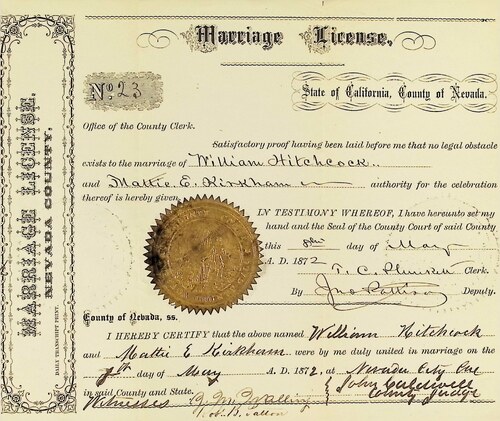 Marriage License,
MARRIAGE LICENSE.
NEVADA COUNTY.
DAILY TRANSCRIPT PRINT.
No. 23
State of California, County of Nevada.
Office of the County Clerk.
Satisfactory proof having been laid before me that no legal obstacle
exists to the marriage of William Hitchcock
and Mattie E. Kirkham authority for the celebration
thereof is hereby given.
IN TESTIMONY WHEREOF, I have hereunto set my
hand and the Seal of the County Court of said County
this day of May
A. D. 1872
T. C. Plunkett Clerk.
By Jno Pattison Deputy.
County of Nevada, ss.
I HEREBY CERTIFY that the above named William Hitchcock
and Mattie E Kirkham were by me duly united in marriage on the
day of May A. D. 1872, at Nevada City
in said County and State. John Caldwell
County Judge
Witnesses